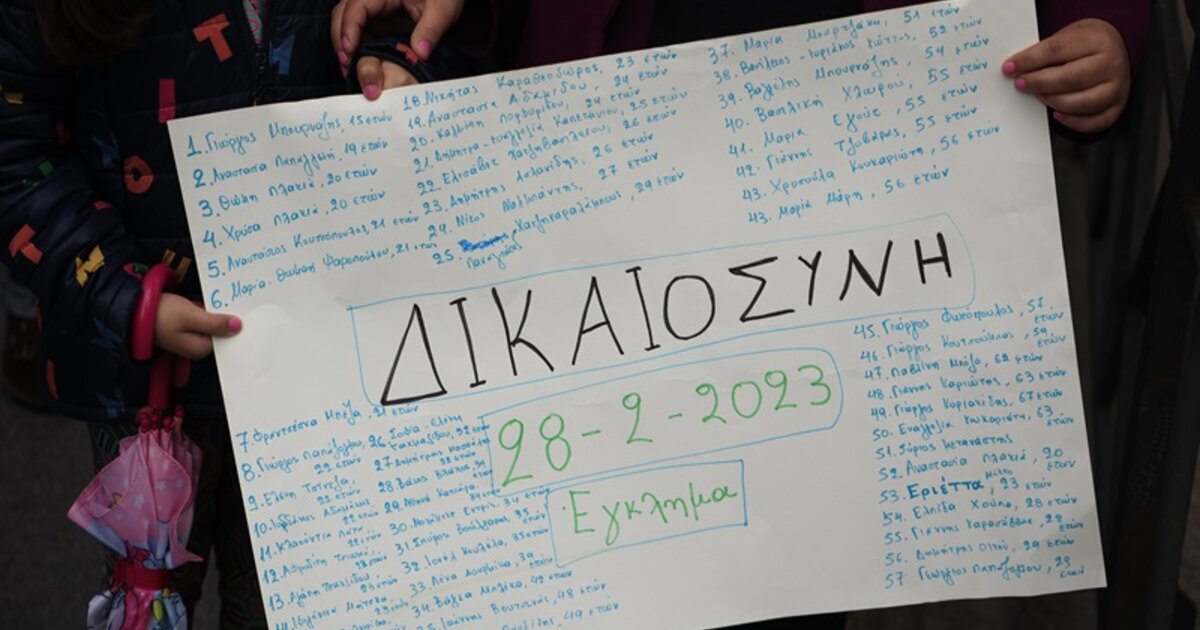 1. Γιώργος Μπουρνάζης, 15 ετών
2. Αναστασία Παπαγγελή, 19 ετών
3. Θώμη Πλακιά, 20 ετών
4. Χρύσα Πλακιά, 20 ετών
5. Αναστάσιος Κουτσόπουλος, 21 ετών
6. Μαρία-Θωμαή Ψαροπούλου, 21 ετών
18. Νικήτας Καραθεοδώρος, 23 ετών
19. Αναστασία Αδαμίδου, 24 ετών
20. Καλλιόπη Πορφυρίδου, 24 ετών
21. Δήμητρα-Ευαγγελία Καπετάνιου, 25 ετών
22. Ελισάβετ Χατζηβασιλείου, 26 ετών
23. Δημήτρης Ασλανίδης, 26 ετών
24. Νίκος Ναλμπάντης, 27 ετών
25. Χατζηχαραλάμπους, 29 ετών
Παναγιώτης
37. Μαρία Μουρτζάκη, 51 ετών
38. Βασίλειος-Κυριάκος Κώττας, 52 ετών
39. Βαγγέλης Μπουρνάζης, 54 ετών
40. Βασιλική Χλωρού, 55 ετών
41. Μαρία Εγούτ, 55 ετών
42. Γιάννης Τζοβάρας, 55 ετών
43. Χρυσούλα Κουκαριώτη, 56 ετών
43. Μαρία Μάρη, 56 ετών
ΔΙΚΑΙΟΣΥΝΗ
28-2-2023
Έγκλημα
7. Φραντσέσκα Μπέζα, 21 ετών
8. Γιώργος Παπάζογλου,
22 ετών
9. Ελένη Τσίντζα,
22 ετών
10. Ιορδάνης Αδαμάκης,
22 ετών
11. Κλαούντια Λάτα
22 ετών
12. Αφροδίτη
13. Αγάπη Τσακλίδου
23 ετών
26. Σοφία-Ελένη
Ταχμαζίδου, 32 ετών
27. Δημήτρης
28. Βάιος Βλάχος, 34
29. Αθηνά Κατσάρα,
30. 34 ετών
31. Σπύρος Βούλγαρης, 35
ετών
32. Ιωνάλ Κουλέλα, 35 ετών
33.
34. Βάγια Μπλέκα, 42 ετών
Ιωάννης Βουτσινάς, 48 ετών
49 ετών
45. Γιώργος Φωτόπουλος, 57
ετών
46. Γιώργος Κουτσούμπας, 59
ετών
47. Παβλίνα Μπόζο, 62 ετών
48. Γιάννης Καριώτης, 63 ετών
49. Γιώργος Κυριακίδης, 67 ετών
50. Ευαγγελία Κουκαριώτη, 63
ετών
51. Σύριος μετανάστης
52. Αναστασία Πλακιά, 20
ετών
53. Εριέττα Μόλχο, 23 ετών
54. Ελπίδα Χούπα, 28 ετών
55. Γιάννης Καρασάββας, 28
ετών
56. Δημήτρης Οικο, 29 ετών
57 Γεώργιος Παπάζογλου, 23
ετών